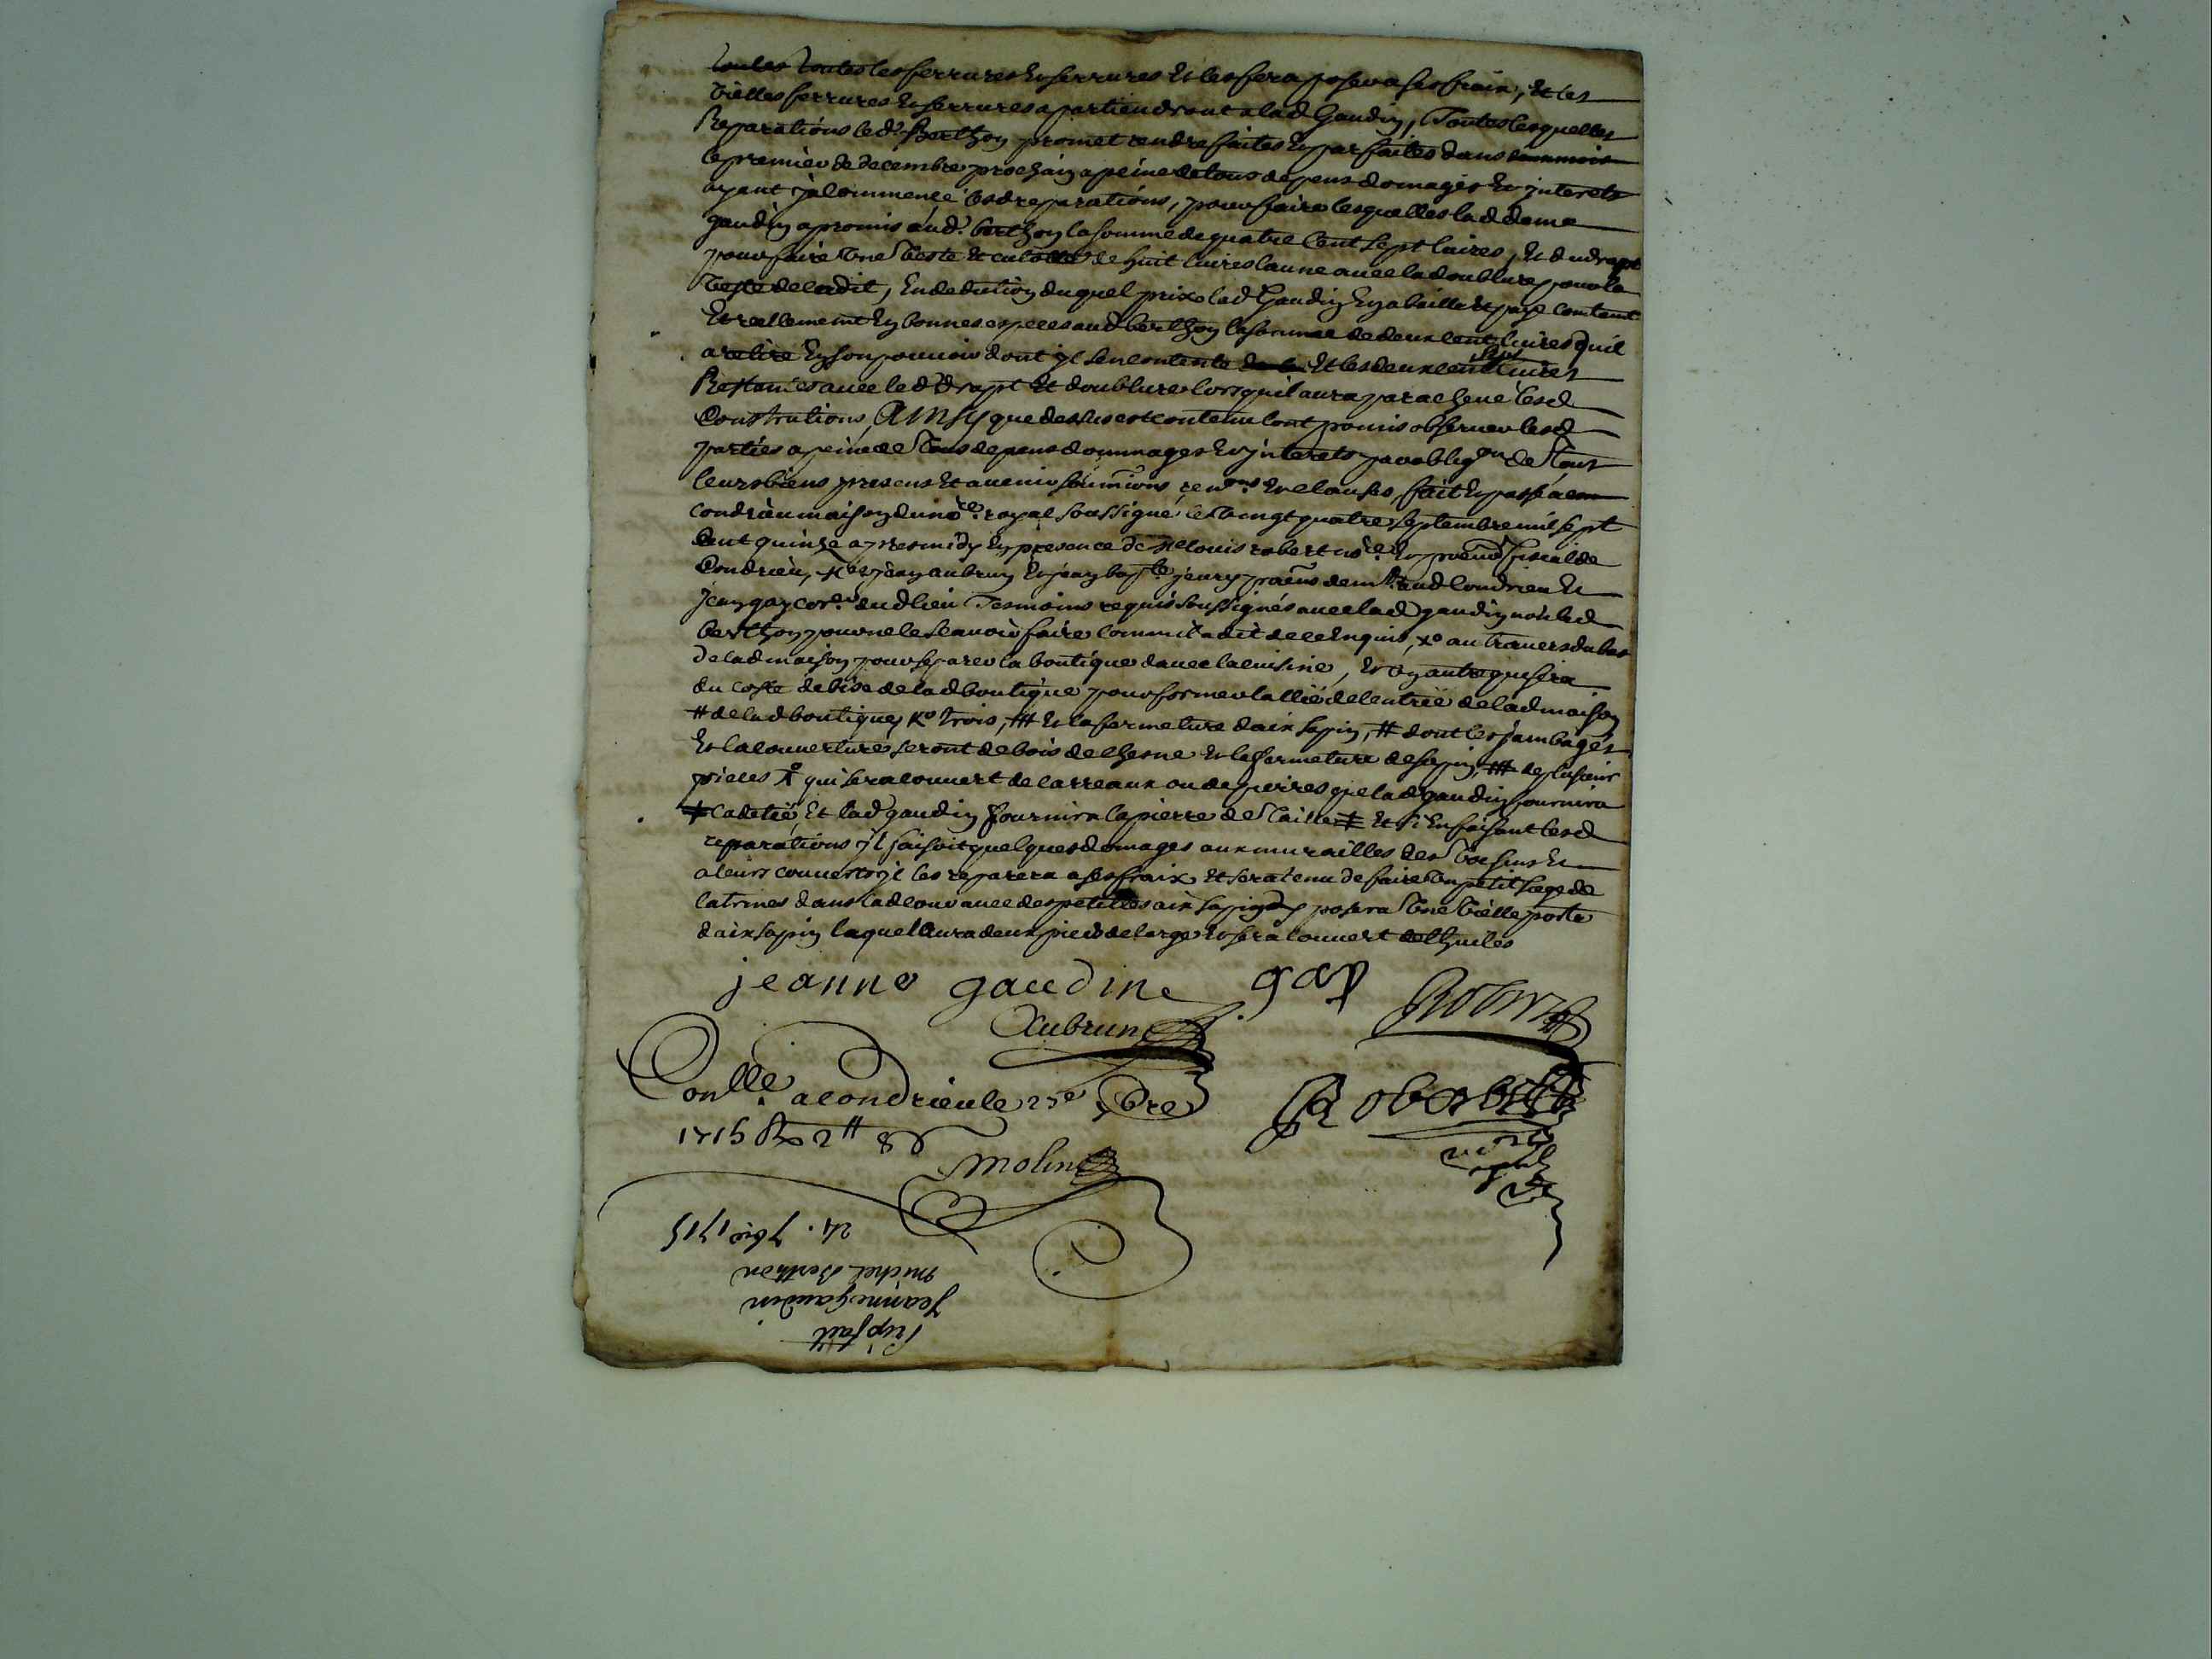 toutes toutes les ferrures & serrures Et les fera poser a ses fraix, Et les
vielles ferrures & serrures apartiendront a lad Gaudin, Toutes lesquelles
Reparations led. Berthon promet rendre faites & parfaites dans
le premier de decembre prochain a peine de tous depens domages & interets
ayant ja commencé lesd reparations, pour faire lesquelles lad dame
gaudin a promis aud. berthon la somme de quatre Cent sept livres, Et du drapt
pour faire Une Veste Et culotte de huit livres laune avec la doublure pour la
Veste de cadit, En dedution duquel prix lad Gaudin En a baille Et payé contant
Et reellement En bonnes especes aud berthon la somme de deux cent livres quil
a retiré En son pouvoir dont jl sen contente Et les deux cent sept livres
Restantes avec led drapt Et doublure lorsquil aura parachevé lesd
Construtions, AINSY que dessus est contenu lont promis observer lesd
parties a peine de Tous depens dommages & interets par obligon de Tous
leurs biens presens Et avenir soumions renons & clauses, fait & passé a
condrieu maison du nore royal soussigné le Vingt quatre septembre mil sept
Cent quinze apres midy En presence de Me louis robert nore & procur fiscal de
Condrieu, jean aubrun & jean bapte jeury de aud Condrieu Et
jean gay cord. dud lieu Tesmoins requis soussignés avec lad gaudin non led
berthon pour ne le scavoir faire comme il a dit de ce Enquis, xo au travers du bas
de lad maison pour separer la boutique davec la cuisine, Et Un autre qui sera
du costé de bise de lad boutique pour former lallée de lentrée de lad maison
# de lad boutique, xo trois, ## Et la fermeture daix sapin, # dont les jambages
Et la couverture seront de bois de chesne Et la fermeture de sapin, ### de plusieurs
pieces xo qui sera couvert de carreaux ou de pierres que lad gaudin fournira
# cadetté, Et lad gaudin fournira la pierre de Taille # Et si En faisant lesd
reparations jl faisoit quelques domages aux murailles des Voisins Et
a leurs couverts jl les reparera a ses fraix Et sera tenu de faire Un petit siege de
latrines dans lad cour avec des petittes aix sapin & y posera Une Vielle porte
daix sapin laquelle aura deux pieds de large & sera couvert de thuiles
jeanne gaudine gay
Aubrun
Conlle a condrieu le 25e 7bre
1715 Rx 2# 8s
Robert
nore
royal
molin
24. 7bre 1715
michel Berthon
Jeanne Gaudin
Prixfait